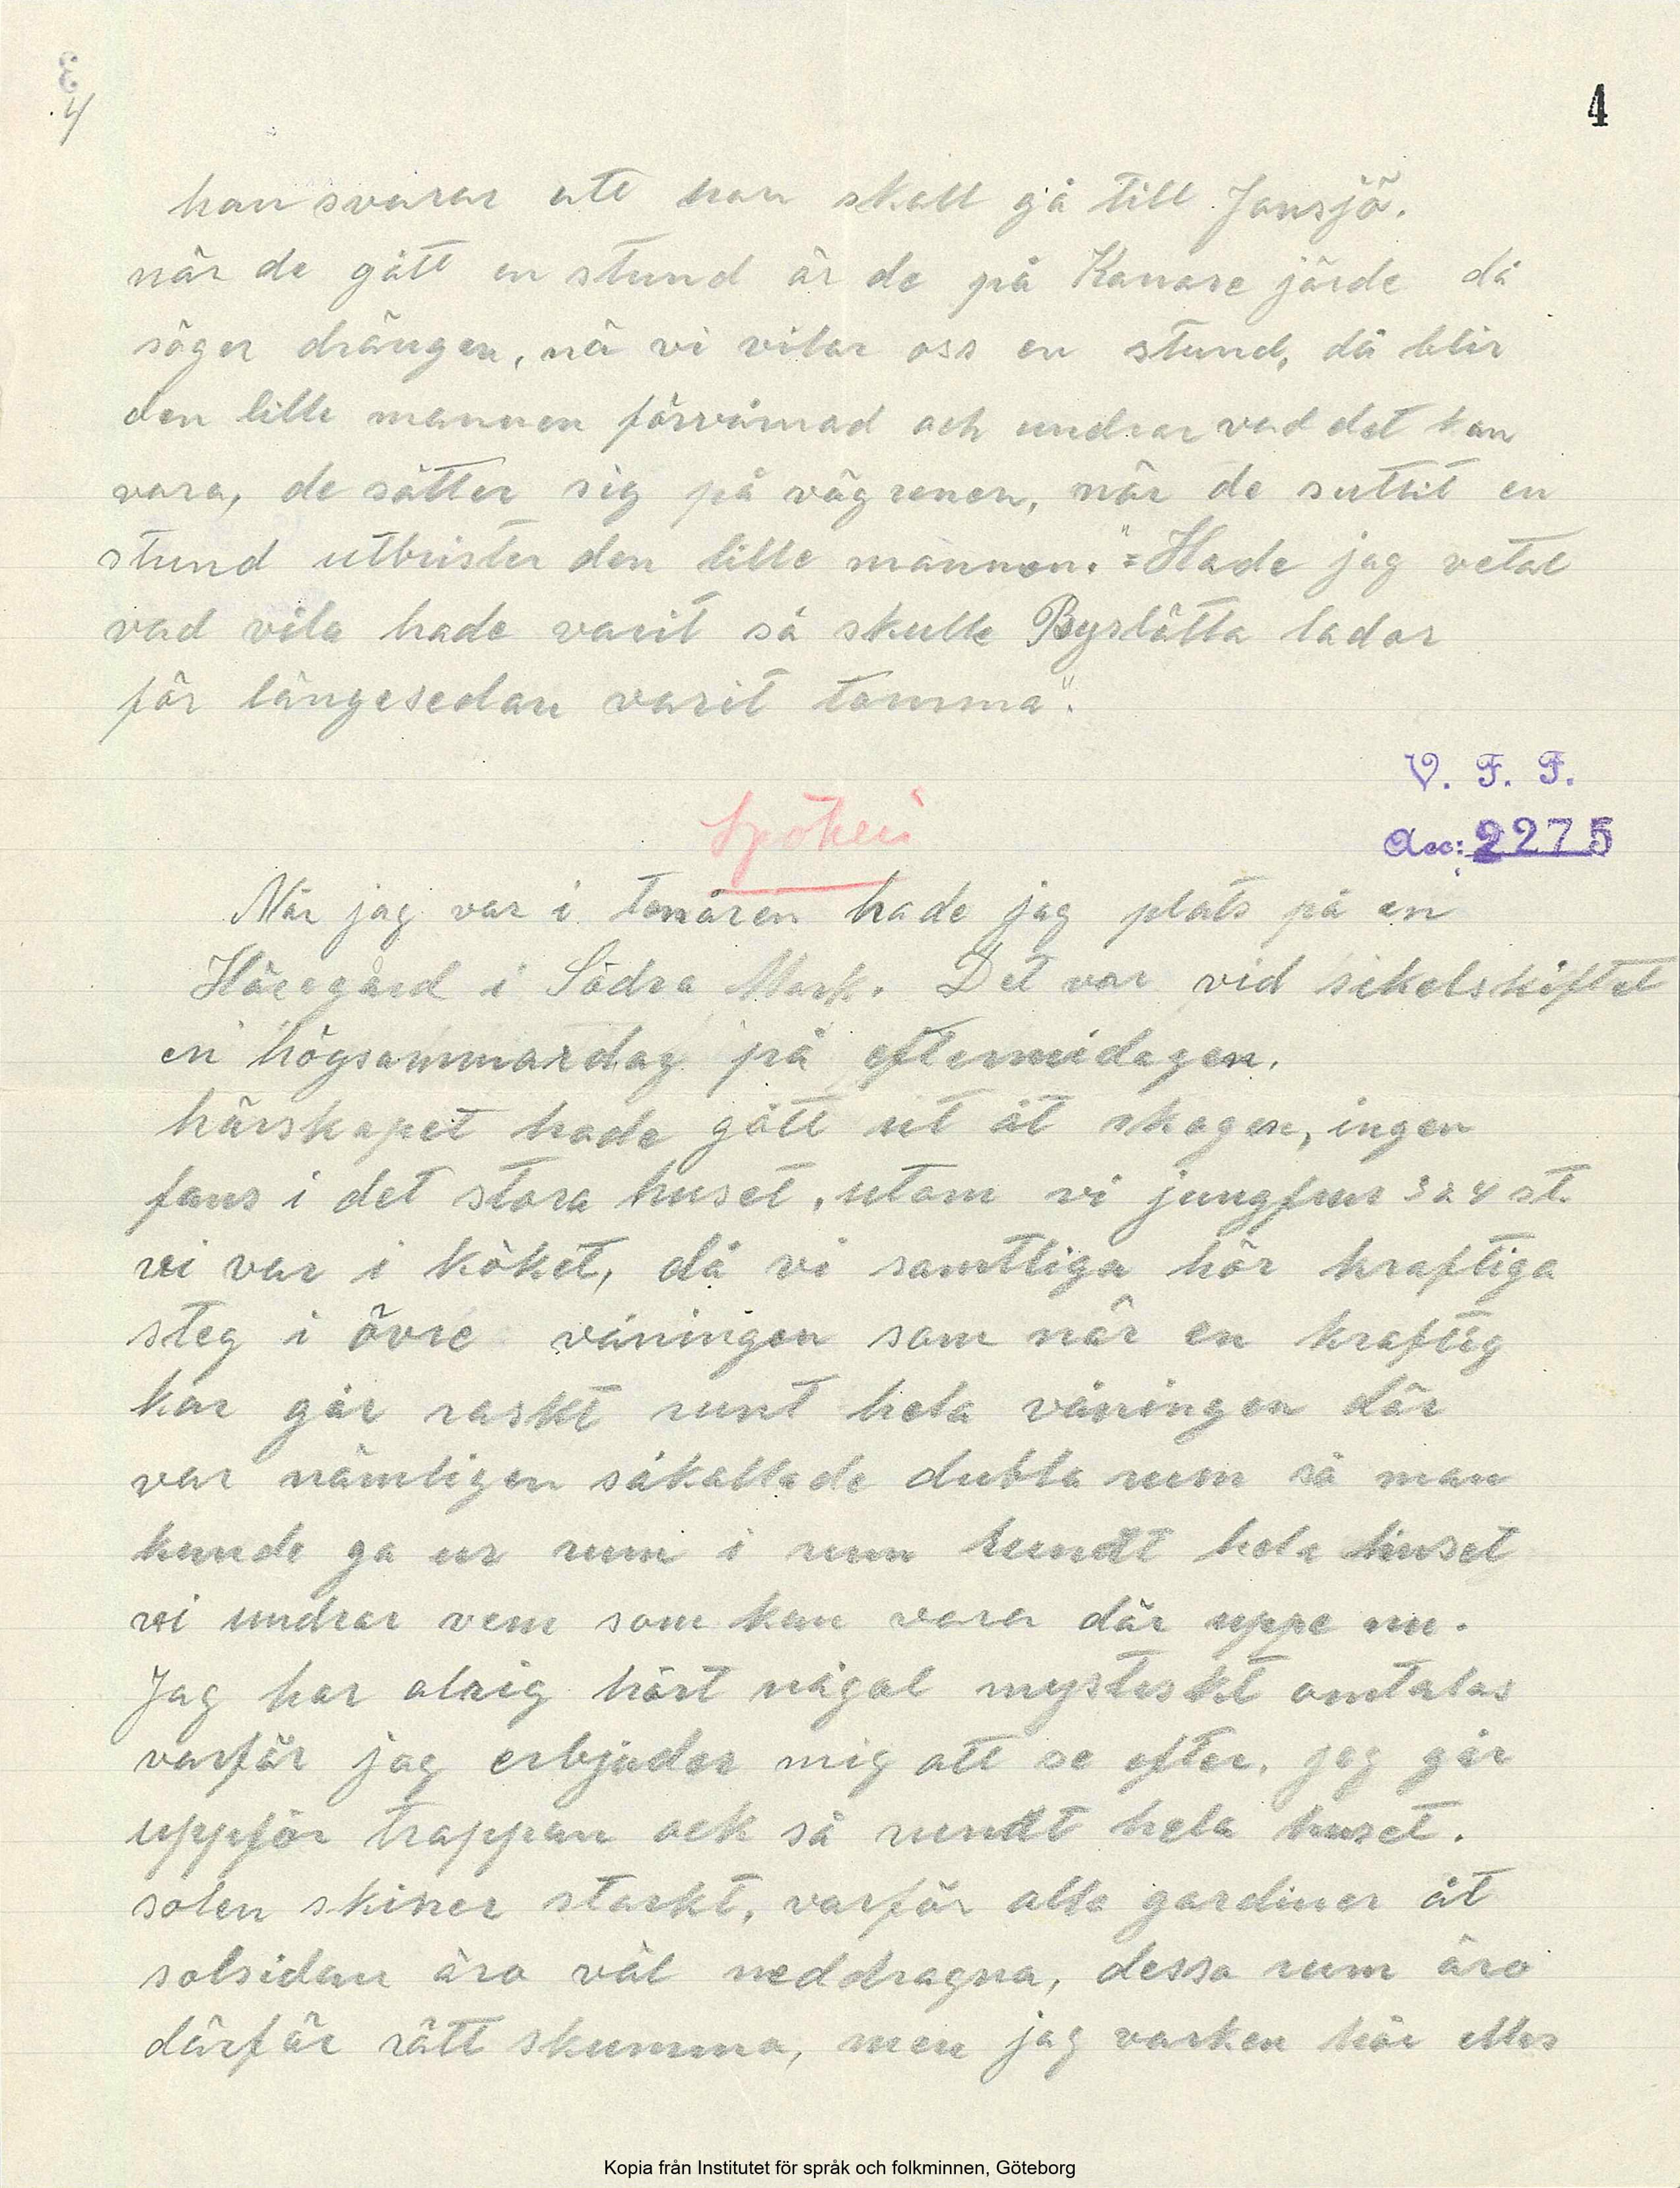 4
4
han svarar att han skall gå till Jansjö.
när de gått en stund är de på Kanare järde då
säger drängen, nä vi vilar oss en stund, då blir
den lille mannen förvånad och undrar vad det kan
vara, de sätter sig på vägrenen, när de suttit en
stund utbrister den lille mannen. "=Hade jag vetat
vad vila hade varit så skulle Byslätta lador
för längesedan varit tomma".
V. F. F.
Acc: 2275
Spöken
När jag var i tonåren hade jag plats på en
Häregård i Södra Mark. Det var vid sekelskiftet
en högsommardag på eftermidagen.
härskapet hade gått ut åt skogen, ingen
fans i det stora huset, utom vi jungfrur 3 a 4 st.
vi var i köket, då vi samtliga hör kraftiga
steg i övre våningen som när en kraftig
kar går raskt runt hela våningen där
var nämligen såkallade dubla rum så man
kunde ga ur rum i rum rundt hela huset
vi undrar vem som kan vara där uppe nu.
Jag har alrig hört något mystiskt omtalas
varför jag erbjuder mig att se efter. jag går
uppför trappan ock så rundt hela huset.
solen skiner starkt, varför alla gardiner åt
solsidan äro väl neddragna, dessa rum äro
därför rätt skumma, men jag varken hör eller
Kopia från Institutet för språk och folkminnen, Göteborg